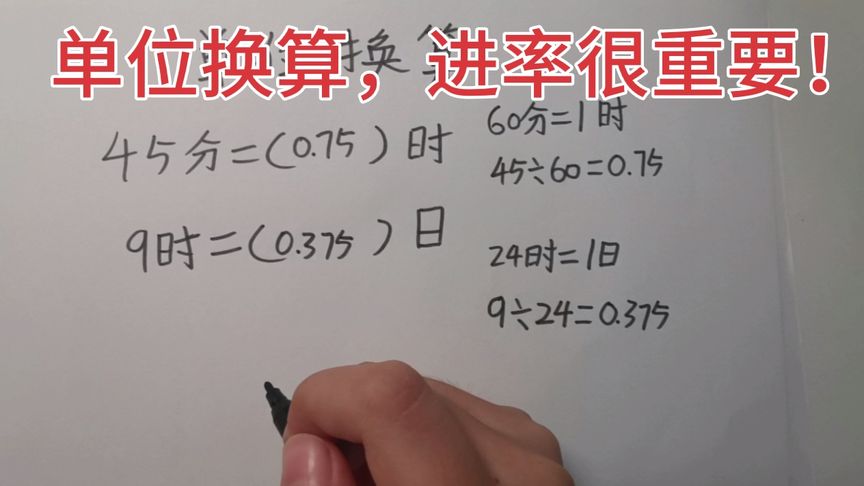 单位换算，进率很重要！
换算
45分=(0.75)时
60分=1时
45÷60=0.75
9时=(0.375)日
24时=1日
9÷24=0.375